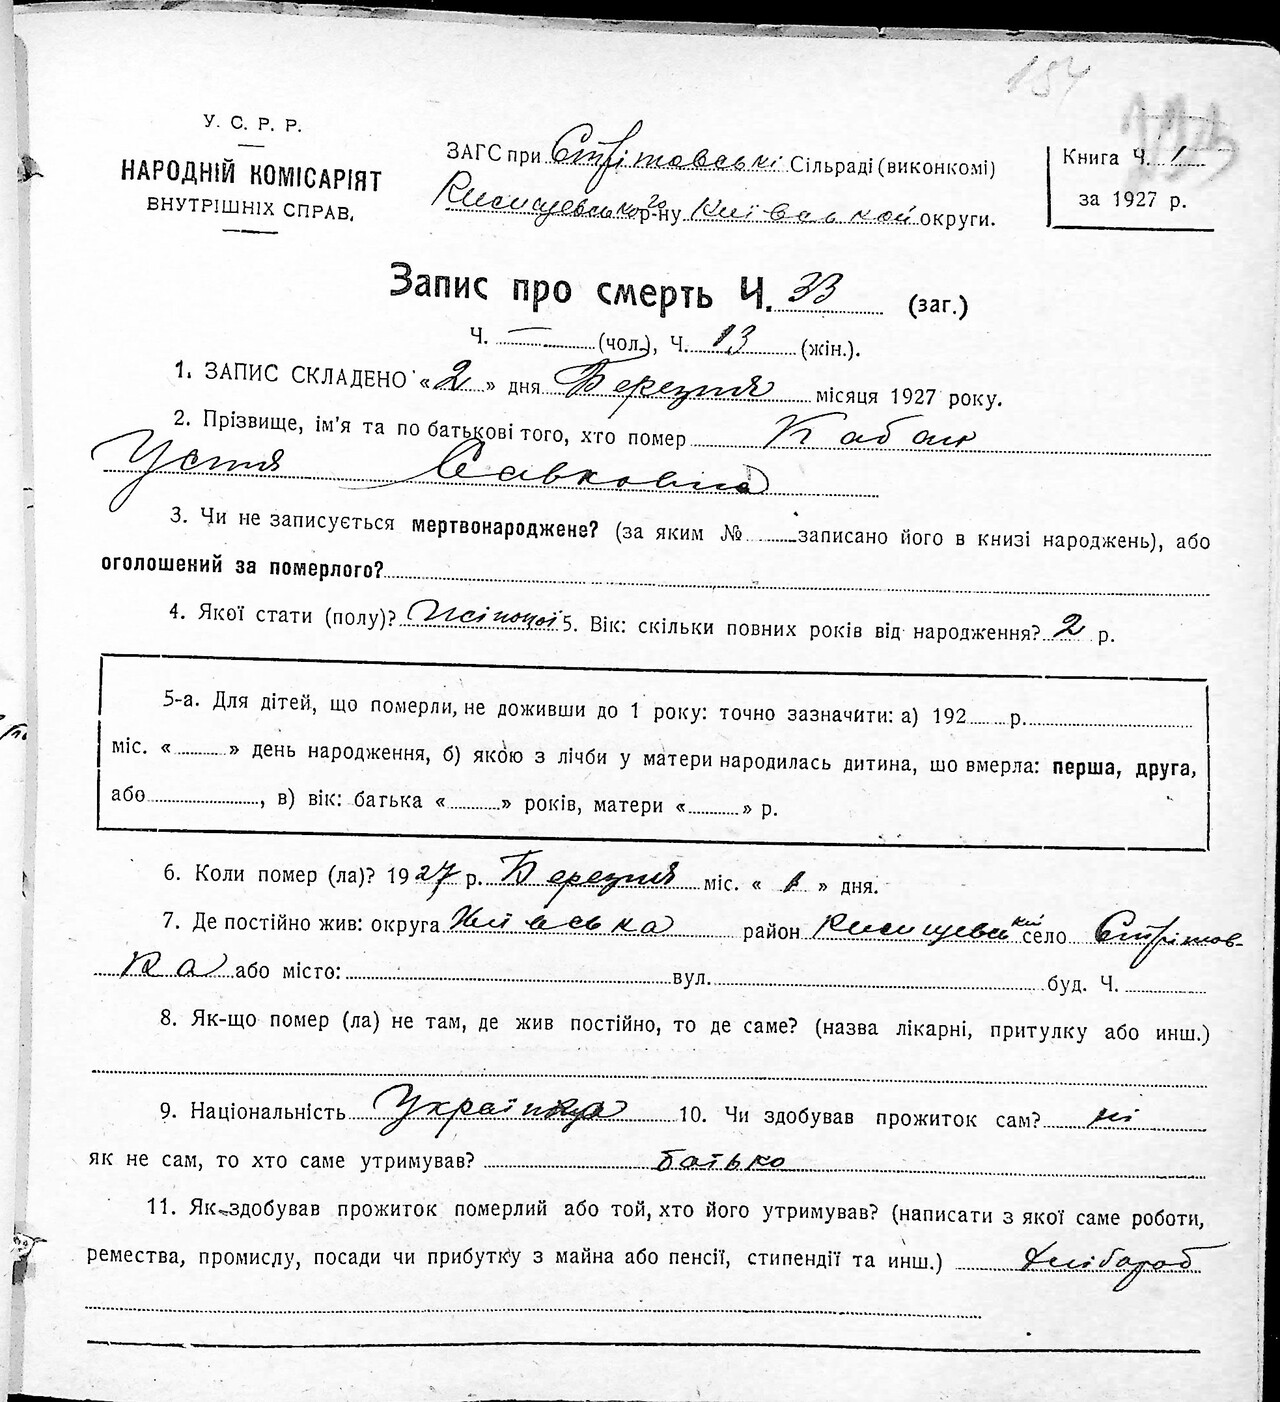 154
У. С. Р. Р.
НАРОДНІЙ КОМІСАРІЯТ
ВНУТРІШНІХ СПРАВ.
ЗАГС при Стрітовські Сільраді (виконкомі)
р-ну Київської округи.
Книга Ч. 1
за 1927 р.
Запис про смерть Ч. 33 (заг.)
Ч. — (чол.), Ч. 13 (жін.).
1. ЗАПИС СКЛАДЕНО «2» дня Березня місяця 1927 року.
2. Прізвище, ім'я та по батькові того, хто помер Кабан
Устя Савковна
3. Чи не записується мертвонароджене? (за яким № записано його в книзі народжень), або
оголошений за померлого?
4. Якої стати (полу)? Жіночої 5. Вік: скільки повних років від народження? 2 р.
5-а. Для дітей, що померли, не доживши до 1 року: точно зазначити: а) 192 р.
міс. « » день народження, б) якою з лічби у матери народилась дитина, шо вмерла: перша, друга,
або , в) вік: батька « » років, матери « » р.
6. Коли помер (ла)? 1927 р. Березня міс. « 1 » дня.
7. Де постійно жив: округа Київська район село Стрітов-
ка або місто: вул. буд. Ч.
8. Як-що помер (ла) не там, де жив постійно, то де саме? (назва лікарні, притулку або инш.)
9. Національність Українка 10. Чи здобував прожиток сам? ні
як не сам, то хто саме утримував? батько
11. Як здобував прожиток померлий або той, хто його утримував? (написати з якої саме роботи,
ремества, промислу, посади чи прибутку з майна або пенсії, стипендії та инш.) Хлібороб